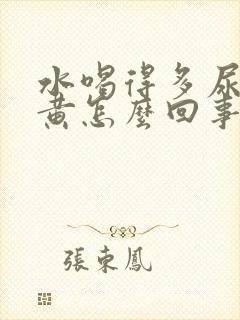 水喝得多尿
黄怎麼回事
張東鳳